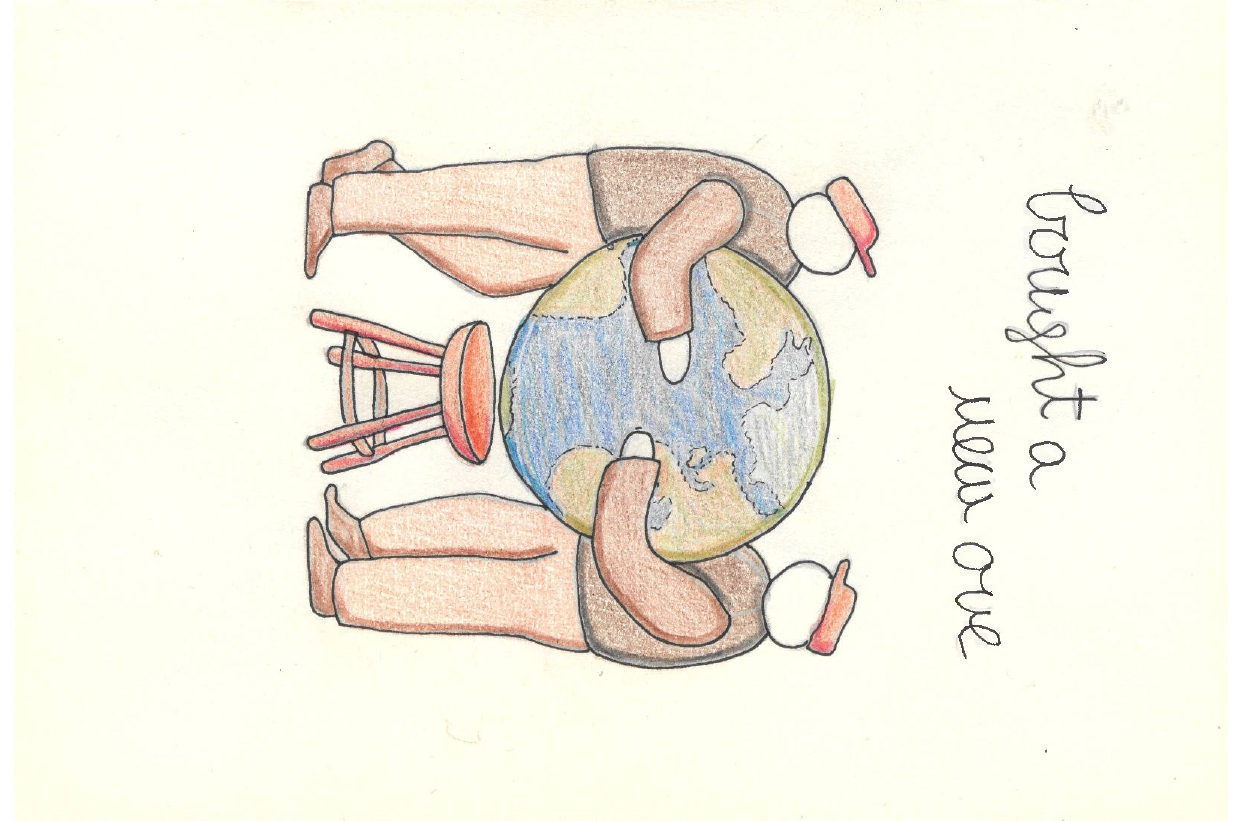 bought a
new one